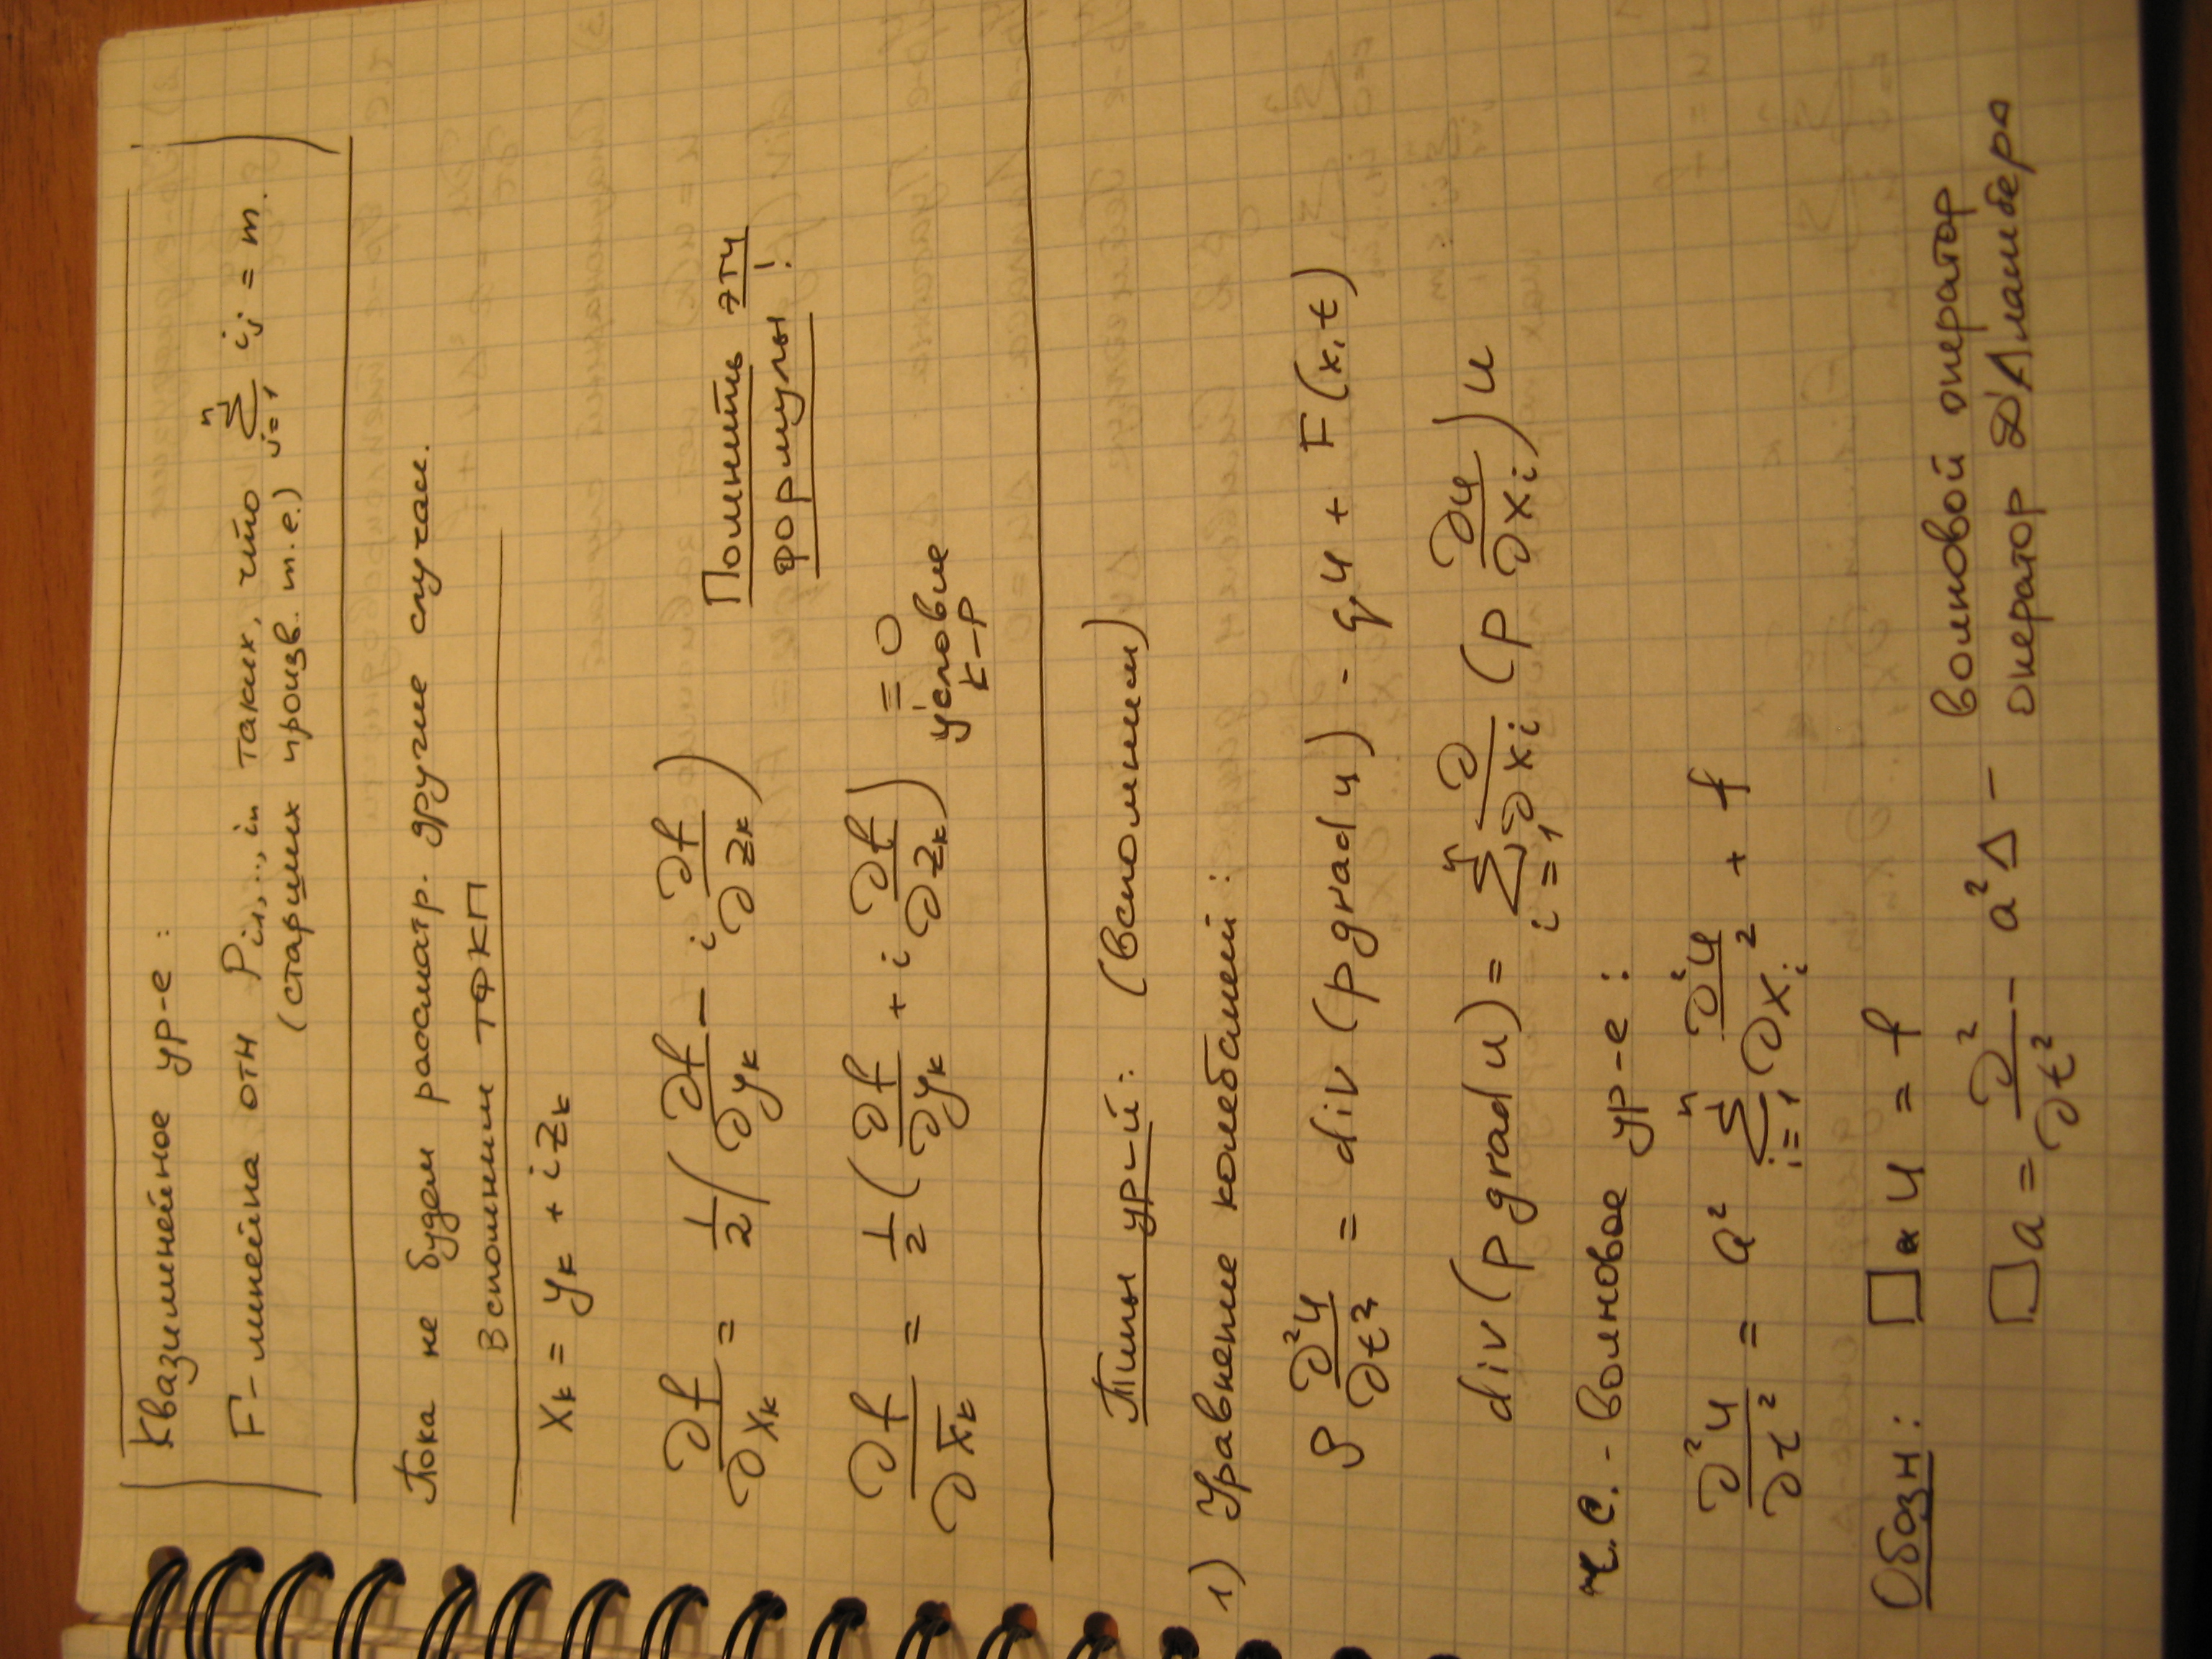 Квазилинейное ур-е:
F - линейна отн P_{i₁,...,iₙ} таких, что \sum_{j=1}^{n} i_j = m.
(старших произв. т.е.)
Пока не будем рассматр. другие случаи.
Вспомним ТФКП
x_k = y_k + i z_k
∂f/∂x_k = 1/2 (∂f/∂y_k − i ∂f/∂z_k)
Помнить эти
формулы!
∂f/∂x̄_k = 1/2 (∂f/∂y_k + i ∂f/∂z_k) = 0
условие
К–Р
Типы ур-й: (вспомним)
1) Уравнение колебаний:
ρ ∂²u/∂t² = div (p grad u) - qu + F(x,t)
div (p grad u) = \sum_{i=1}^{n} ∂/∂x_i (p ∂u/∂x_i) u
Ч.С. - волновое ур-е:
∂²u/∂t² = a² \sum_{i=1}^{n} ∂²u/∂x_i² + f
Обозн: □_a u = f
□a = ∂²/∂t² − a²Δ − волновой оператор
оператор Д'Аламбера